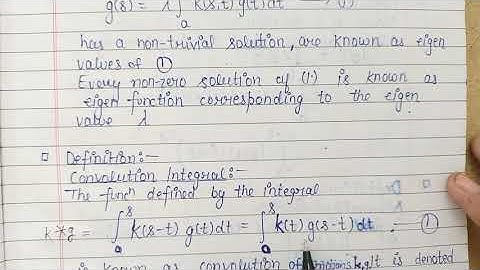 g(s) = λ ∫ₐ k(s,t) g(t) dt
has a non-trivial solution, are known as eigen
values of ①
Every non-zero solution of (1) is known as
eigen-function corresponding to the eigen
value λ
□ Definition:-
Convolution Integral:-
The funcⁿ defined by the integral
k*g = ∫ₒˢ k(s-t) g(t)dt = ∫ₒˢ k(t) g(s-t) dt . ①
is known as convolution of k, g It is denoted